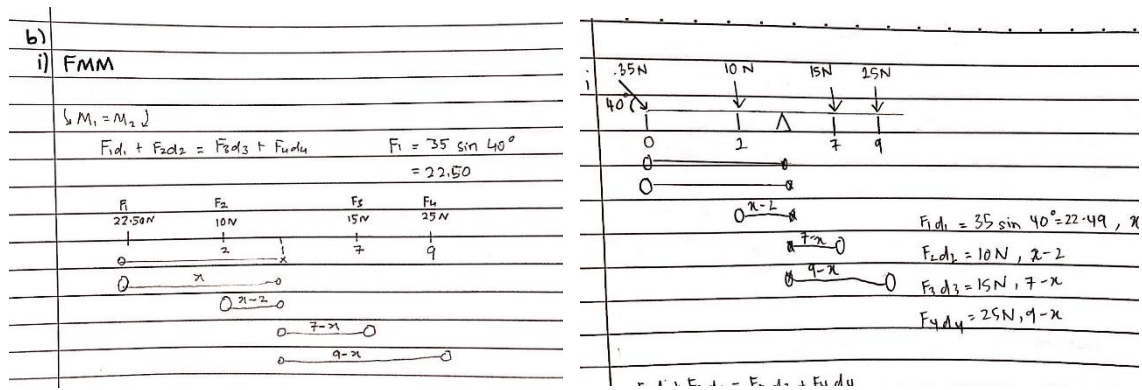 b)
i) FMM
M₁ = M₂
F₁d₁ + F₂d₂ = F₃d₃ + F₄d₄
F₁ = 35 sin 40°
= 22.50
F₁ F₂ F₃ F₄
22.50N 10N 15N 25N
2 7 9
x
x-2
7-x
9-x
i
35N 10N 15N 25N
40°
0 2 7 9
x-2
7-x
9-x
F₁d₁ = 35 sin 40° = 22.49, x
F₂d₂ = 10N, x-2
F₃d₃ = 15N, 7-x
F₄d₄ = 25N, 9-x